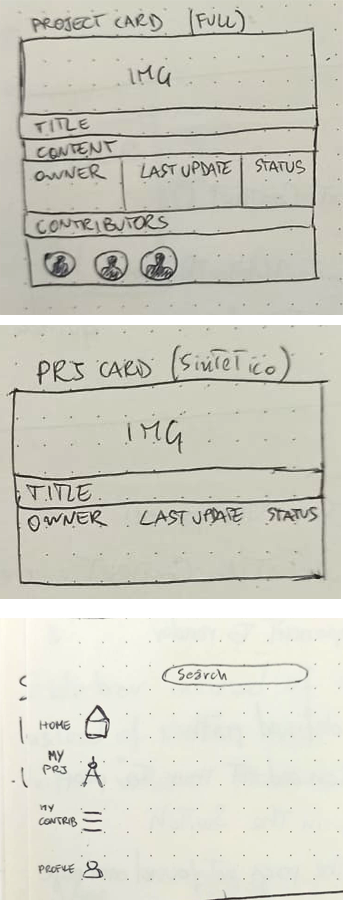 PROJECT CARD (FULL)
IMG
TITLE
CONTENT
OWNER LAST UPDATE STATUS
CONTRIBUTORS
PRJ CARD (SinTeTico)
IMG
TITLE
OWNER LAST UPDATE STATUS
Search
HOME
MY
PRJ
MY
CONTRIB
PROFILE